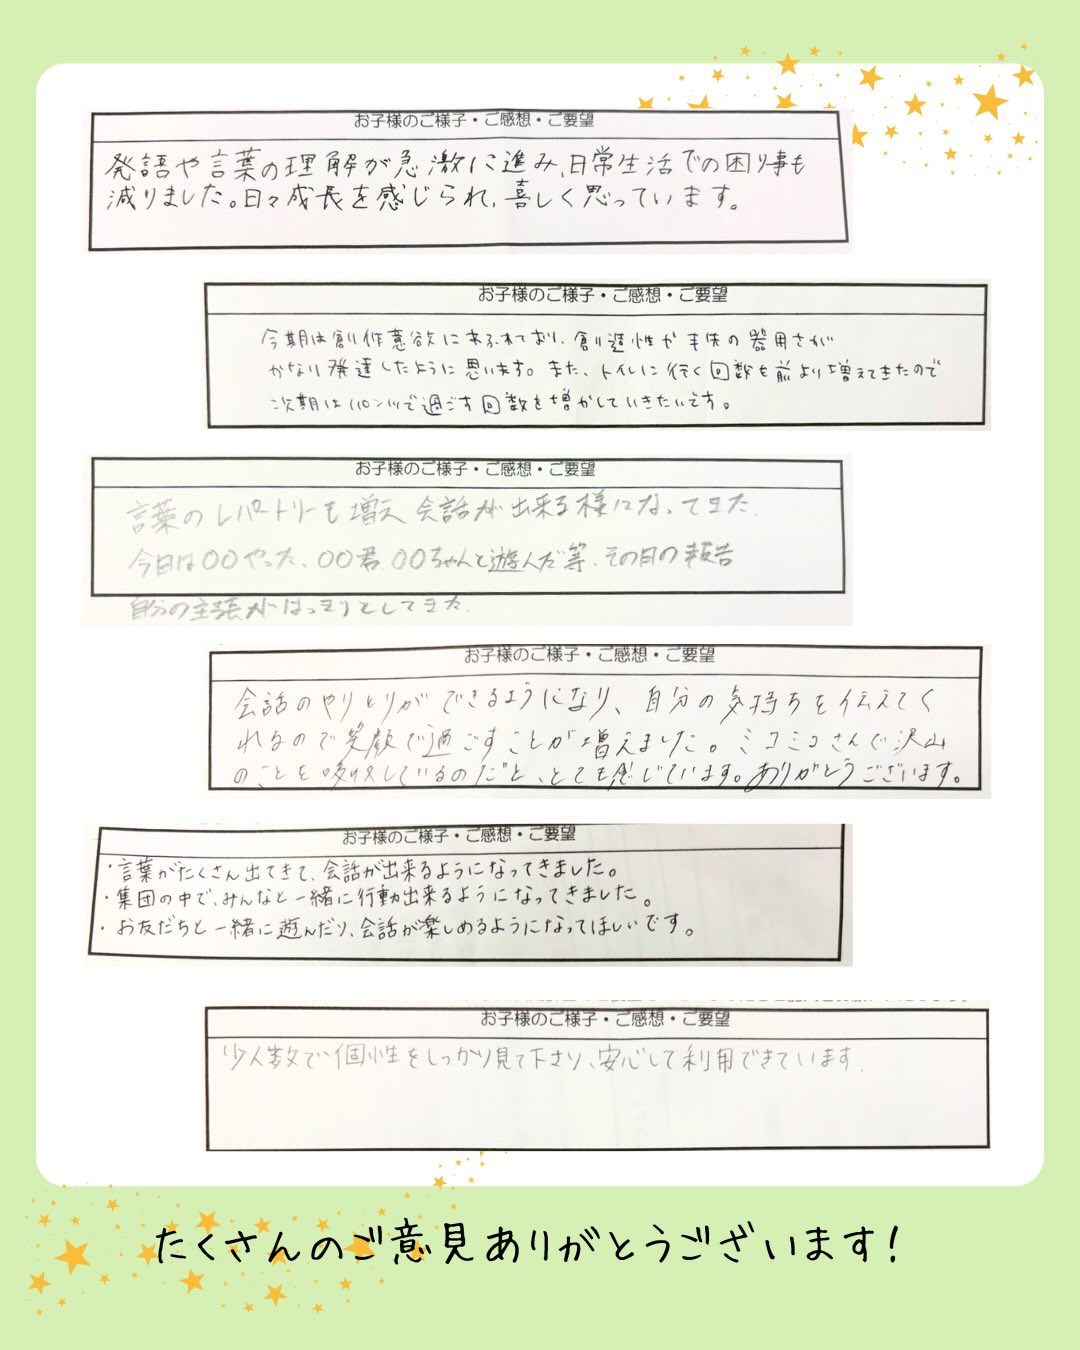 お子様のご様子・ご感想・ご要望
発語や言葉の理解が急激に進み、日常生活での困り事も
減りました。日々成長を感じられ、喜しく思っています。
お子様のご様子・ご感想・ご要望
今期は創作意欲にあふれており、創造性や手先の器用さが
かなり発達したように思います。また、トイレに行く回数も前より増えてきたので
次期はパンツで過ごす回数を増やしていきたいです。
お子様のご様子・ご感想・ご要望
言葉のレパートリーも増え 会話が出来る様になってきた.
今日は〇〇やった、〇〇君 〇〇ちゃんと遊んだ等、その日の報告
自分の主張がはっきりとしてきた.
お子様のご様子・ご感想・ご要望
会話のやりとりができるようになり、自分の気持ちを伝えてく
れるので笑顔で過ごすことが増えました。ミコミコさんで沢山
のことを吸収しているのだと、とても感じています。ありがとうございます。
お子様のご様子・ご感想・ご要望
・言葉がたくさん出てきて、会話が出来るようになってきました。
・集団の中で、みんなと一緒に行動出来るようになってきました。
・お友だちと一緒に遊んだり、会話が楽しめるようになってほしいです。
お子様のご様子・ご感想・ご要望
少人数で個性をしっかり見て下さり、安心して利用できています.
たくさんのご意見ありがとうございます!